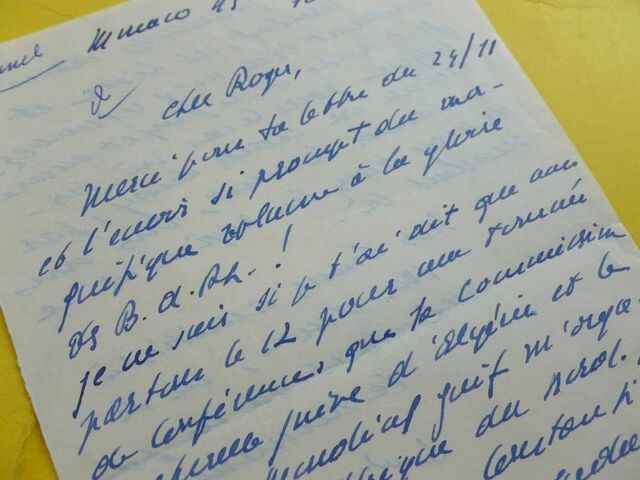 Monaco
Cher Roger,
Merci pour ta lettre du 24/11
et l'envoi si prompt du ma-
gnifique volume à la gloire
des B. d. Rh. !
je ne sais si je t'ai dit que nous
partons le 12 pour une tournée
de conférences que la commission
d'Algérie et le
qu'il m'orga
du nord.